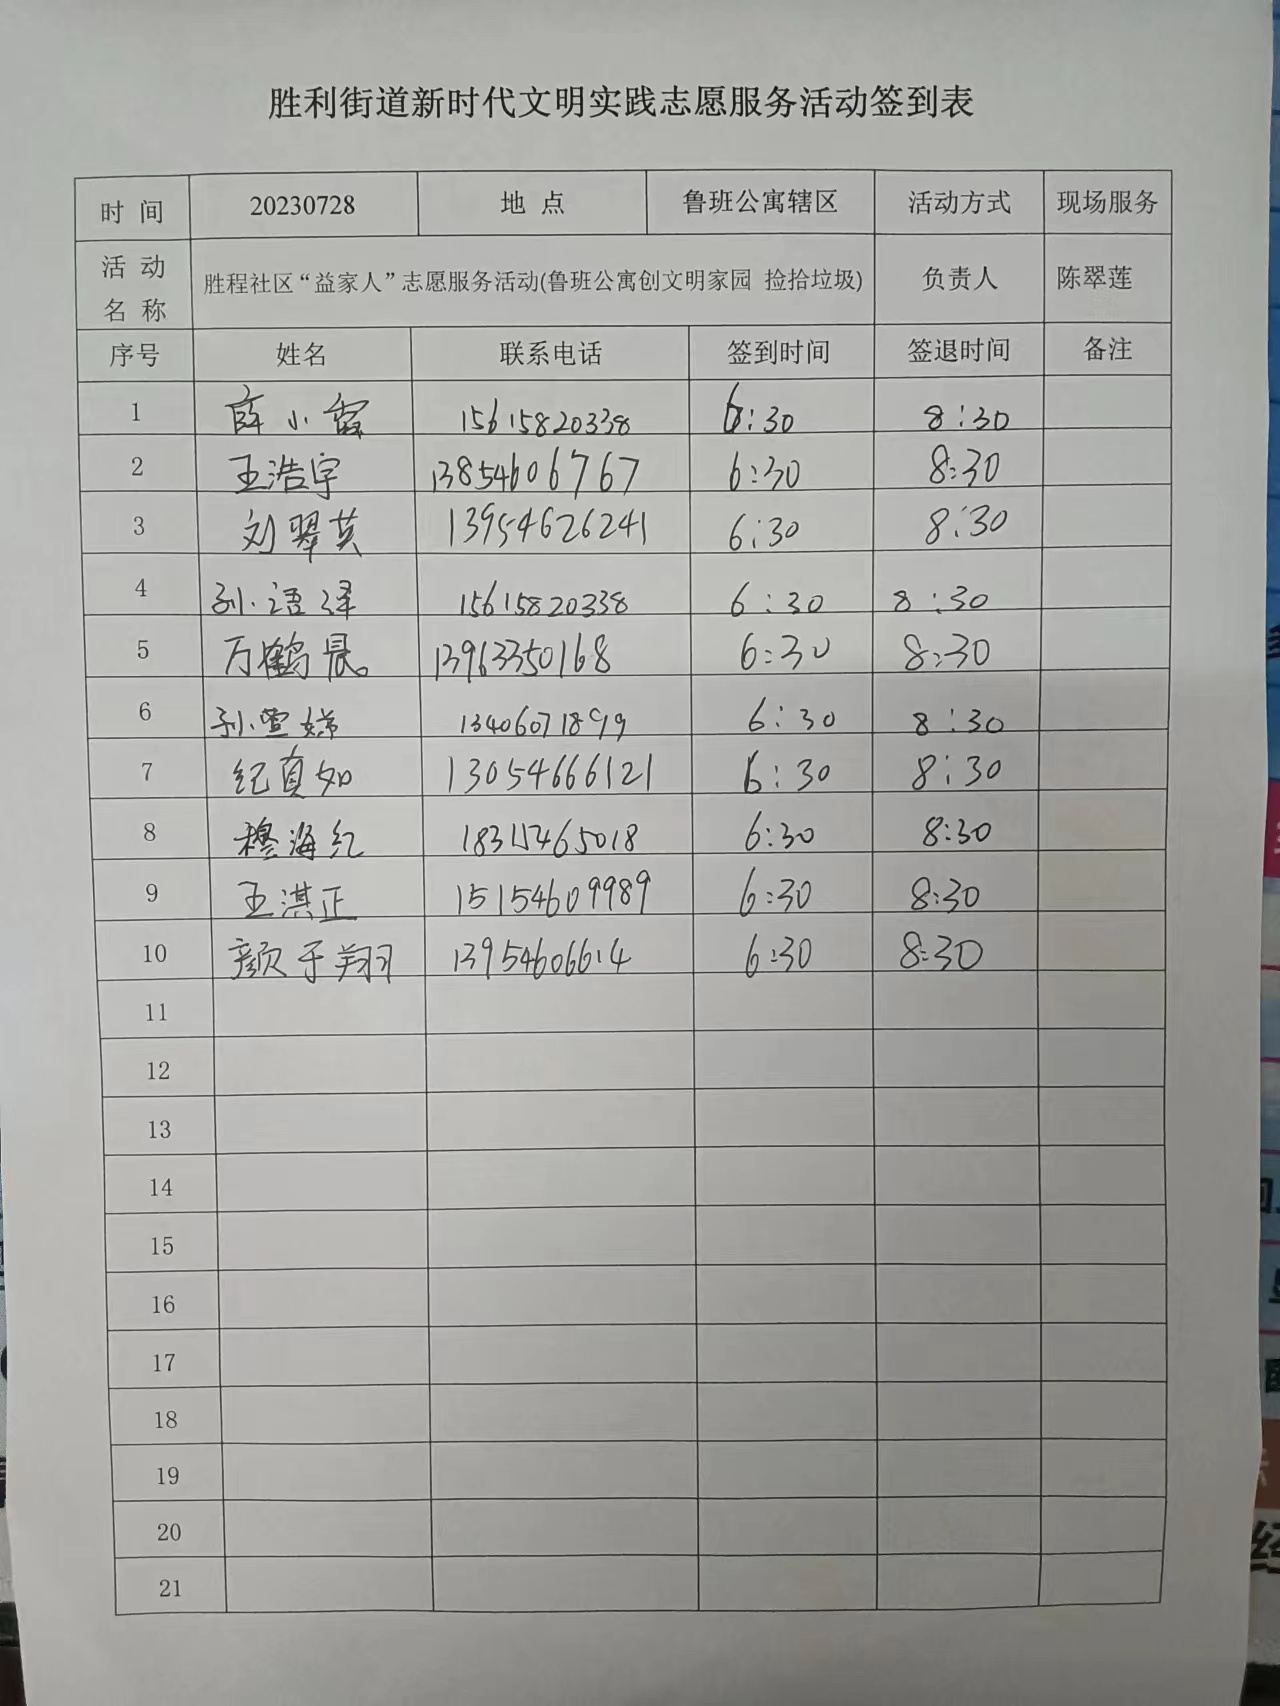 胜利街道新时代文明实践志愿服务活动签到表
时 间 20230728 地 点 鲁班公寓辖区 活动方式 现场服务
活 动 名 称 胜程社区“益家人”志愿服务活动(鲁班公寓创文明家园 捡拾垃圾) 负责人 陈翠莲
序号 姓名 联系电话 签到时间 签退时间 备注
1 薛小霞 15615820338 6:30 8:30
2 王浩宇 13854606767 6:30 8:30
3 刘翠英 13954626241 6:30 8:30
4 孙语泽 15615820338 6:30 8:30
5 万鹤晨 13963350168 6:30 8:30
6 孙萱娣 13406071899 6:30 8:30
7 纪真如 13054666121 6:30 8:30
8 穆海红 6:30 8:30
9 王淇正 15154609989 6:30 8:30
10 颜于翔 13954606614 6:30 8:30
11
12
13
14
15
16
17
18
19
20
21